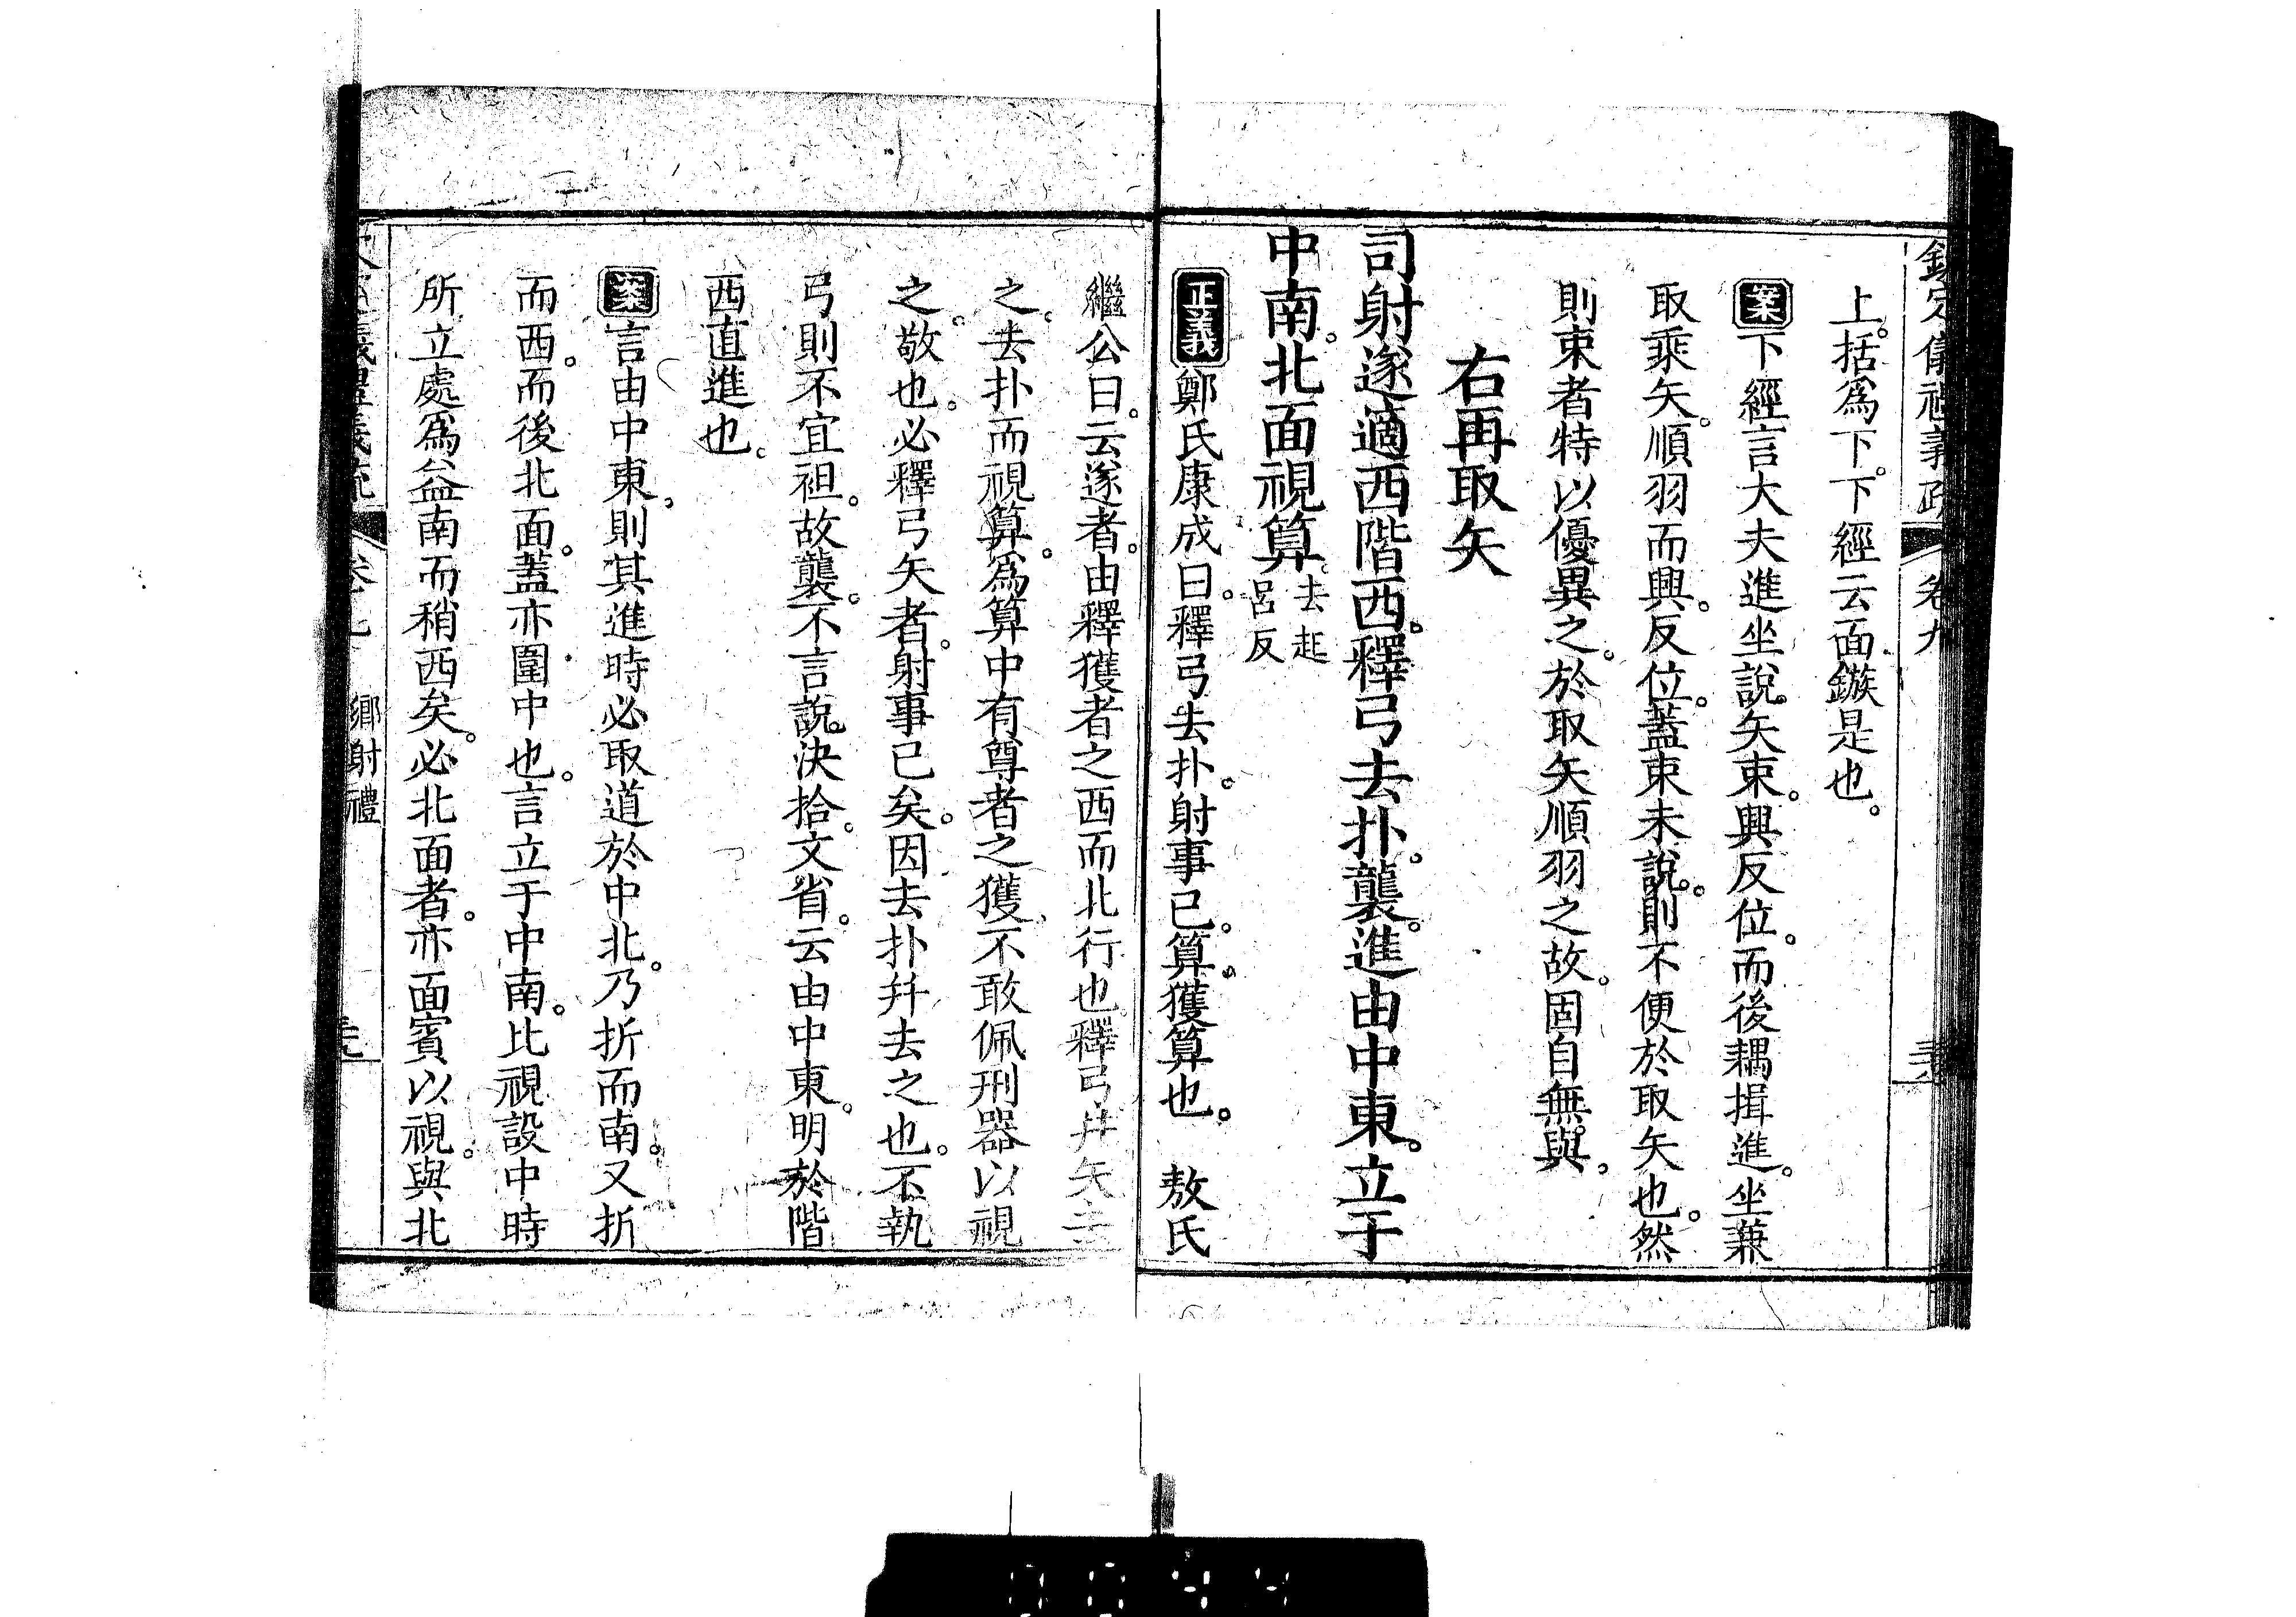 上。括爲下。下經云面鏃是也。
案下經言大夫進坐說。矢束。興反位。而後耦揖進。坐兼
取乘矢。順羽而興。反位。蓋束未說。則不便於取矢也。然
則束者特以優異之。於取矢順羽之故。固自無與。
右再取矢
司射遂適西階西。釋弓去扑。襲。進由中東。立于
中南。北面視算。去起呂反
正義鄭氏康成曰。釋弓去扑。射事已。算。獲算也。 敖氏
繼公曰。云遂者。由釋獲者之西而北行也。釋弓幷矢
之。去扑而視算。爲算中有尊者之獲。不敢佩刑器以視
之。敬也。必釋弓矢者。射事已矣。因去扑幷去之也。不執
弓則不宜袒。故襲。不言說決拾。文省。云由中東。明於階
西直進也。
案言由中東。則其進時必取道於中北。乃折而南。又折
而西。而後北面。蓋亦圍中也。言立于中南。比視設中時
所立處爲益南而稍西矣。必北面者。亦面賓以視。與北
卷九
鄉射禮